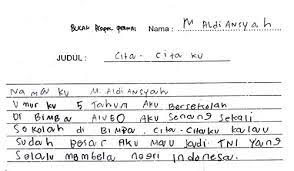 Nama: M Aldiansyah
JUDUL: Cita-Cita ku
Nama ku M. Aldiansyah
Umur ku 5 Tahun Aku Bersekolah
Di BIMBA AIUEO AKU Senang Sekali
Sekolah di BIMBA. Cita-Citaku kalau
Sudah besar Aku Mau Jadi TNI Yang
Selalu Membela negri Indonesia.